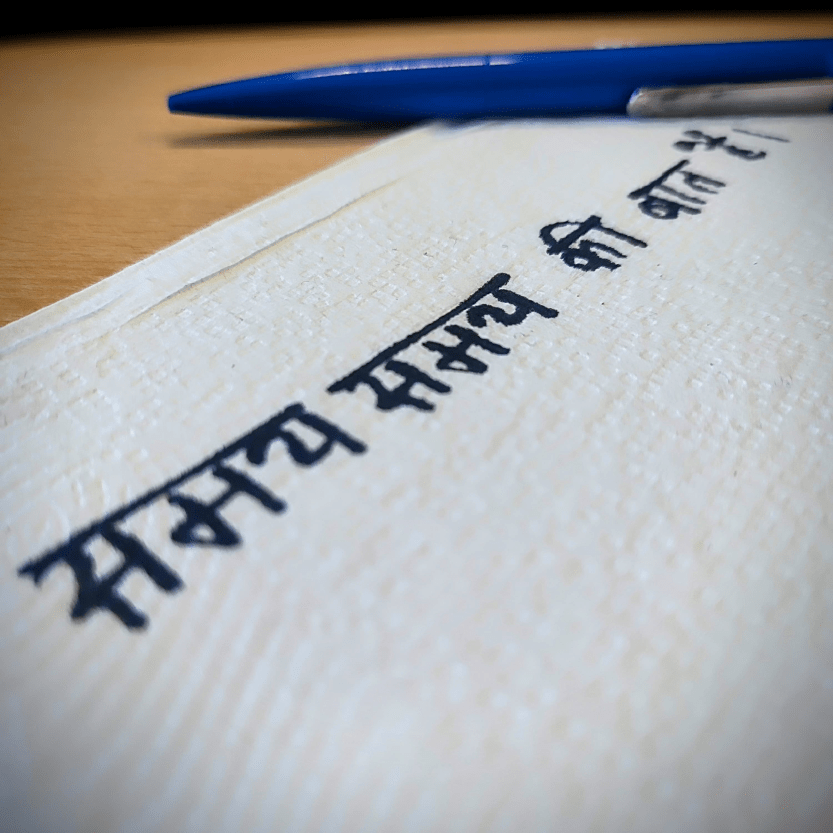 समय समय की बात है।